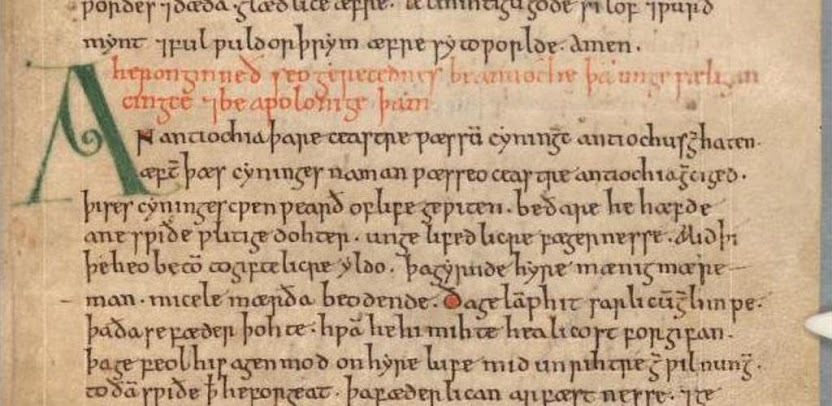 ƿordes ⁊ dæda glædlice æfre. se ælmihtigu gode si lof ⁊ ƿurð
mynt ⁊ ful ƿuldorþrým æfre sý to ƿorlde. Amen.
her onginneð seo gerecednes be antioche þā ungesæligan
cingce ⁊ be apolonige þām
AN antiochia þare ceastre ƿæs sū cýningc antiochus ḡhaten.
æft̄ þæs cýninges naman ƿæs seo ceaster antiochia ḡciged.
þises cýninges cƿen ƿearð of life geƿiten. be ðare he hæfde
ane sƿiðe ƿlitige dohter. ungelifedlicre fægernesse. Mid þi
þe heo becō to giftelicre ýldo. þa gýrnde hýre mænig mære
man. micele mærða beodende. Ða gelāp hit sarlicū ḡlimpe.
þa ða se fæder þohte. hƿā he hi mihte healicost forgifan.
þa gefeol his agen mod on hýre lufe mid unrihtre ḡƿilnunḡ.
to ðā sƿiðe ꝥ he forgeat. þa fæderlican arfæstnesse. ⁊ ge